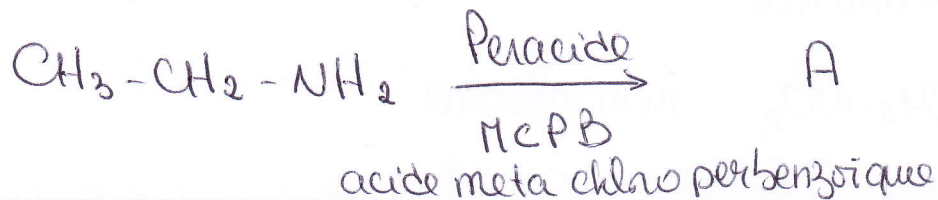 CH3-CH2-NH2 Peracide A
MCPB
acide meta chloro perbenzoique